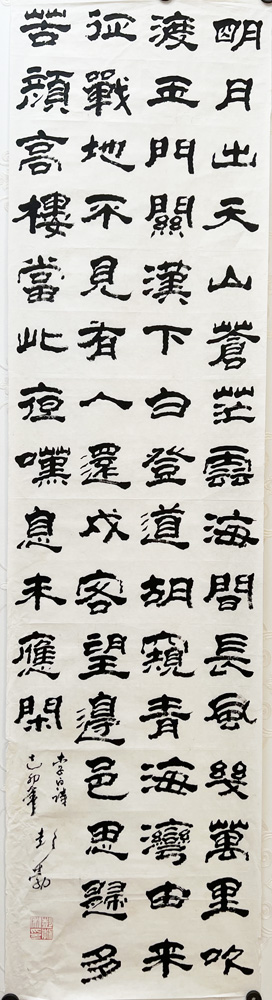 明月出天山蒼茫雲海間長風幾萬里吹
渡玉門關漢下白登道胡窺青海灣由来
征戰地不見有人還戍客望邊邑思歸多
苦顏高樓當此夜嘆息未應閑
李白詩
己卯年